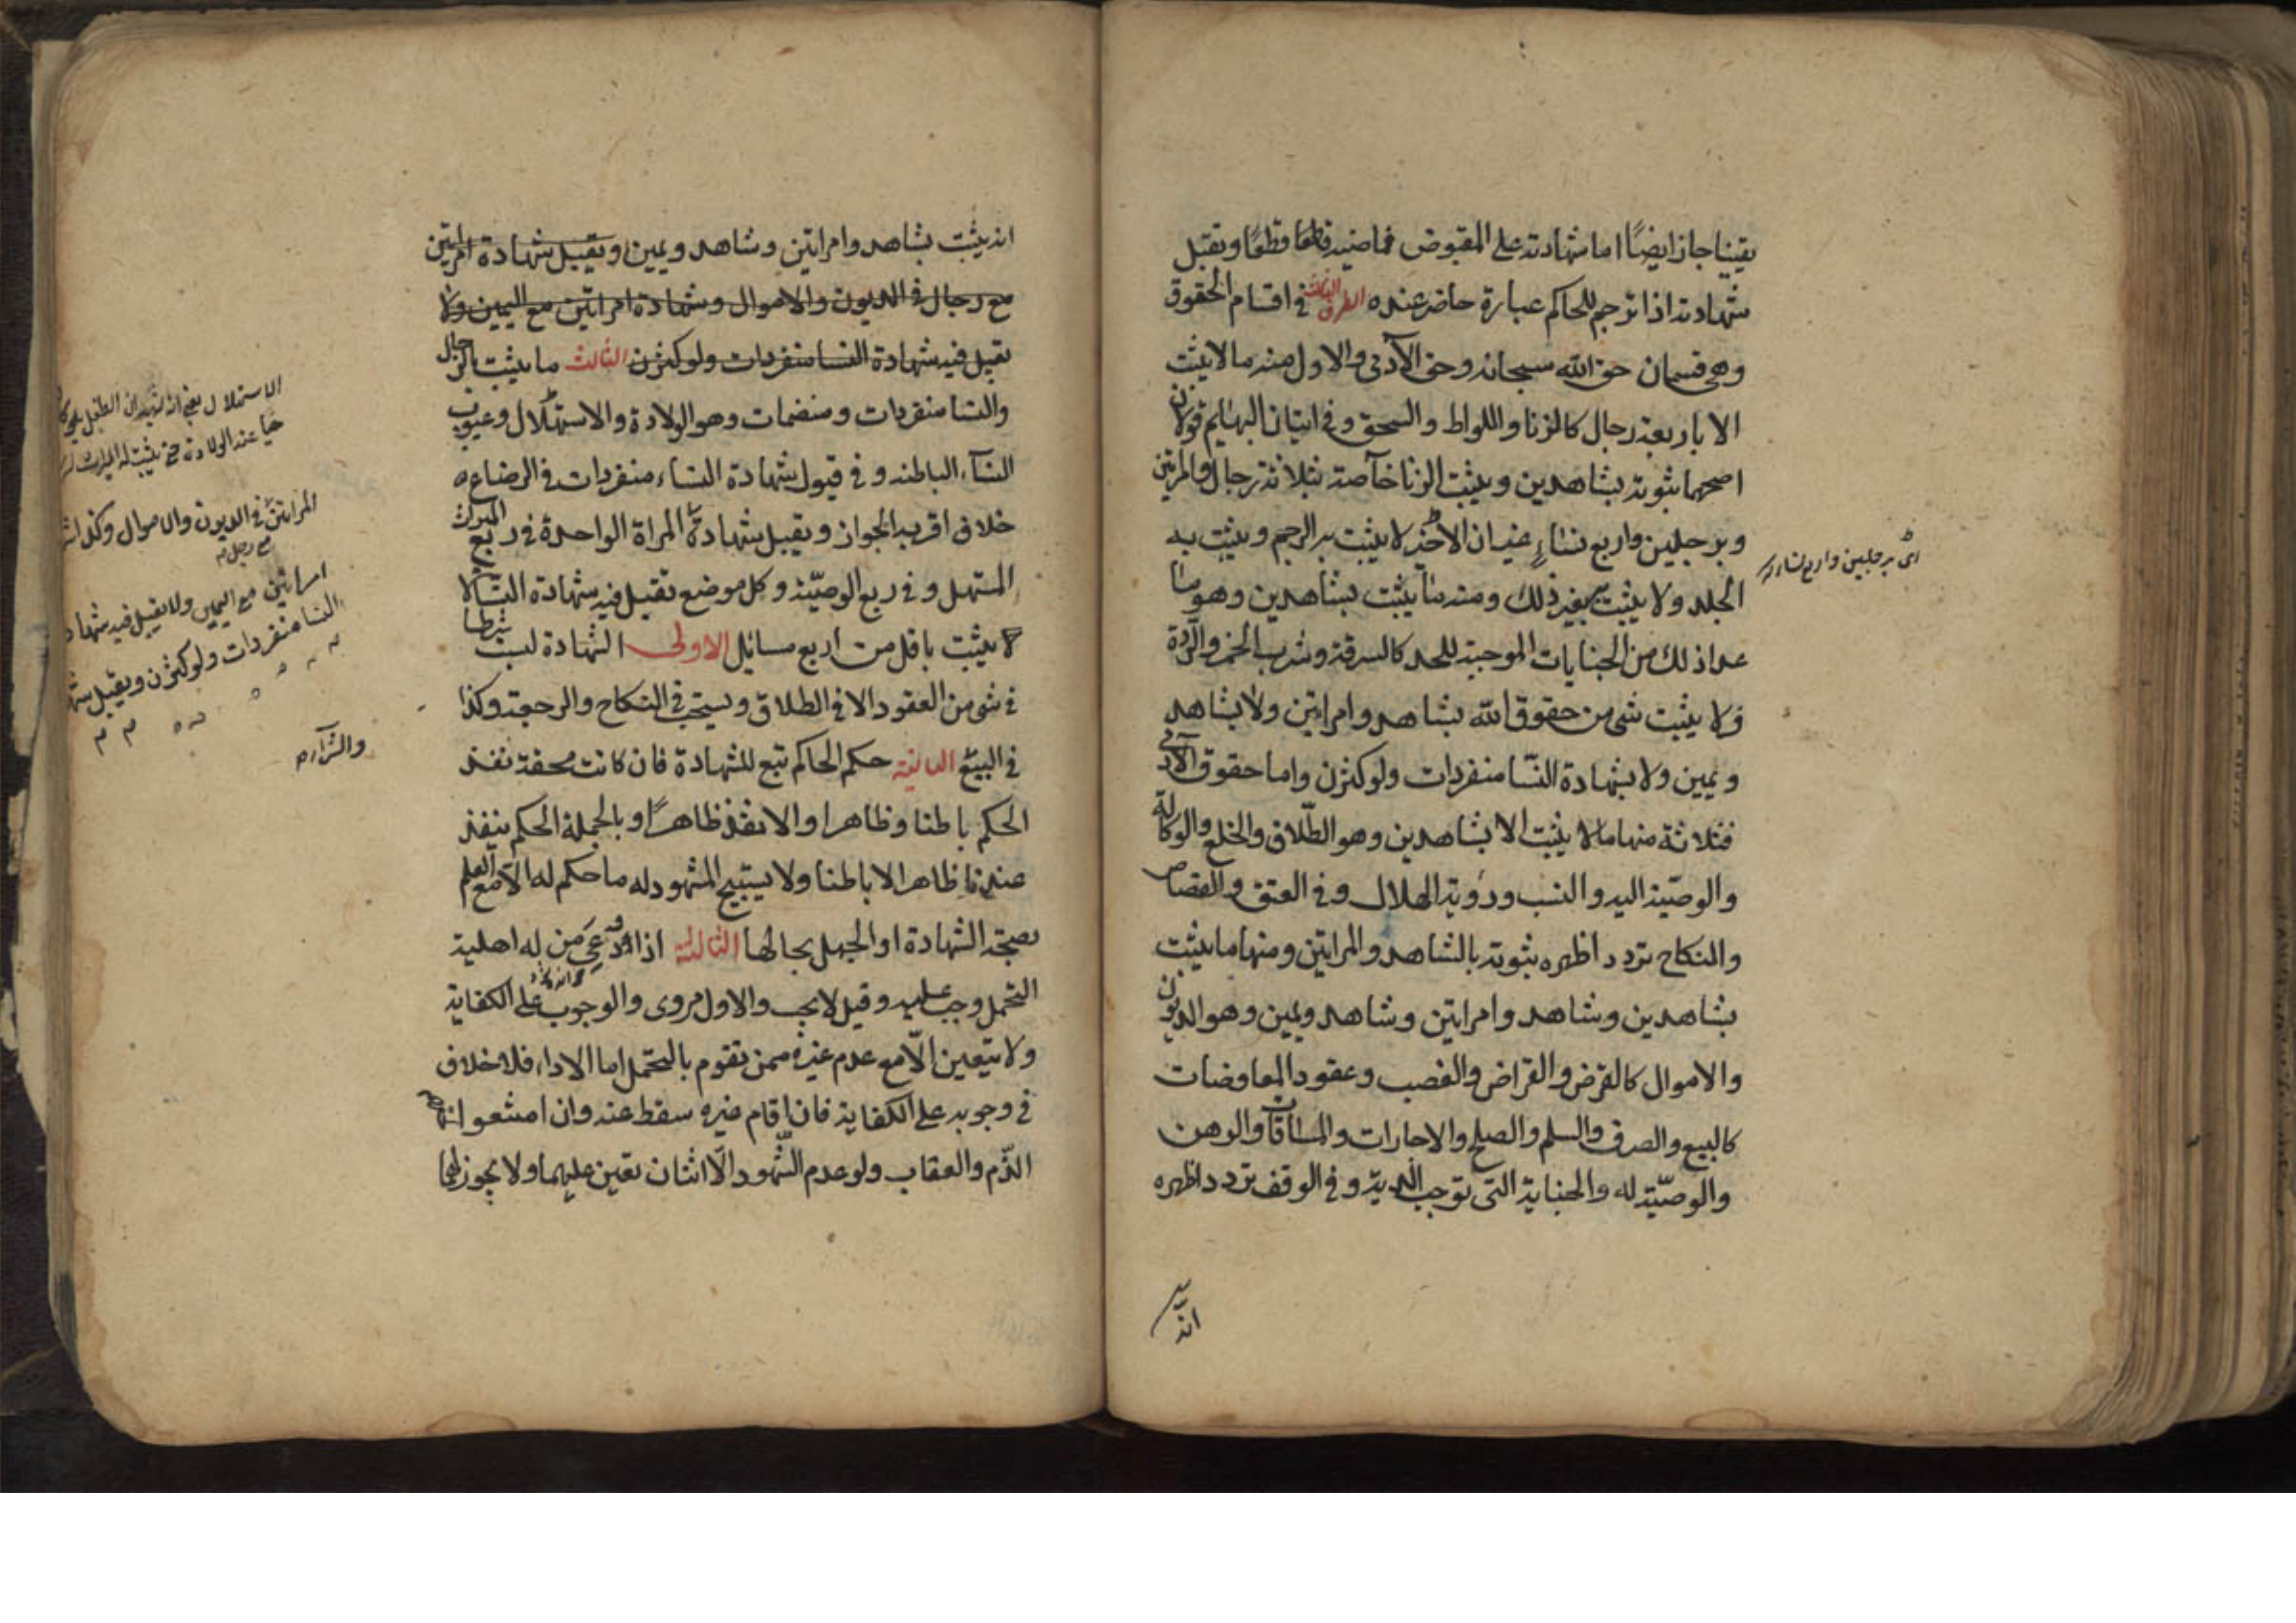 يقينا جاز ايضًا اما شهادته على المقبوض فماضية قطعًا وتقبل
شهادته اذا ترجم للحاكم عبارة حاضر عنده الطرف الثالث فى اقسام الحقوق
وهى قسمان حق الله سبحانه وحق الآدمى والاول منه ما لا يثبت
الا باربعة رجال كالزنا واللواط والسحق وفى اتيان البهايم قولان
اصحهما ثبوته بشاهدين ويثبت الزنا خاصة بثلاثة رجال وامراتين
وبرجلين واربع نساء غير ان الاخير لا يثبت به الرجم ويثبت به
اى برجلين واربع نساء
الجلد ولا يثبت بغير ذلك ومنه ما يثبت بشاهدين وهو ما
عدا ذلك من الجنايات الموجبة للحد كالسرقة وشرب الخمر والردة
ولا يثبت شى من حقوق الله بشاهد وامراتين ولا بشاهد
ويمين ولا بشهادة النسا منفردات ولو كثرن واما حقوق الآدمى
فثلاثة منها ما لا يثبت الا بشاهدين وهو الطلاق والخلع والوكالة
والوصيّة اليه والنسب ورؤية الهلال وفى العتق والقصاص
والنكاح تردد اظهره ثبوته بالشاهد والمراتين ومنها ما يثبت
بشاهدين وشاهد وامراتين وشاهد ويمين وهو الديون
والاموال كالقرض والقراض والغصب وعقود المعاوضات
كالبيع والصرف والسلم والصلح والاجارات والمساقات والرهن
والوصيّة له والجناية التى توجب الدية وفى الوقف تردد اظهره
انه
انه يثبت بشاهد وامراتين وشاهد ويمين وتقبل شهادة امراتين
مع رجال فى الديون والاموال وشهادة امراتين مع اليمين ولا
تقبل فيه شهادة النسا منفردات ولو كثرن الثالث ما يثبت بالرجال
والنسا منفردات ومنضمات وهو الولادة والاستهلال وعيوب
النسآء الباطنه وفى قبول شهادة النساء منفردات فى الرضاع
خلاف اقربه الجواز وتقبل شهادة المراة الواحدة فى ربع الميراث
المستهل وفى ربع الوصيّة وكل موضع تقبل فيه شهادة النسآ لا
يثبت باقل من اربع مسائل الاولى الشهادة ليست شرطا
فى شى من العقود الا فى الطلاق وتستحب فى النكاح والرجعة وكذا
فى البيع الثانية حكم الحاكم تبع للشهادة فان كانت محقة نفذ
الحكم باطنا وظاهرا والا نفذ ظاهرًا وبالجملة الحكم ينفذ
عندنا ظاهرا لا باطنا ولا يستبيح المشهود له ما حكم له الا مع العلم
بصحة الشهادة او الجهل بحالها الثالثة اذا دعى من له اهلية
التحمل وجب عليه وقيل لا يجب والاول مروى والوجوب على الكفاية
ولا يتعين الّا مع عدم غيره ممن يقوم بالتحمل اما الاداء فلا خلاف
فى وجوبه على الكفاية فان قام غيره سقط عنه وان امتنعوا
الذّم والعقاب ولو عدم الشّهود الّا اثنان تعين عليهما ولا يجوز لهما
الاستهلال يعنى ان يشهد ان الطفل
حيا عند الولادة حتى يثبت له الميراث
المراتين فى الديون والاموال وكذا
مع رجل
امراتين مع اليمين ولا يقبل فيه شهادة
النسا منفردات ولو كثرن ويقبل